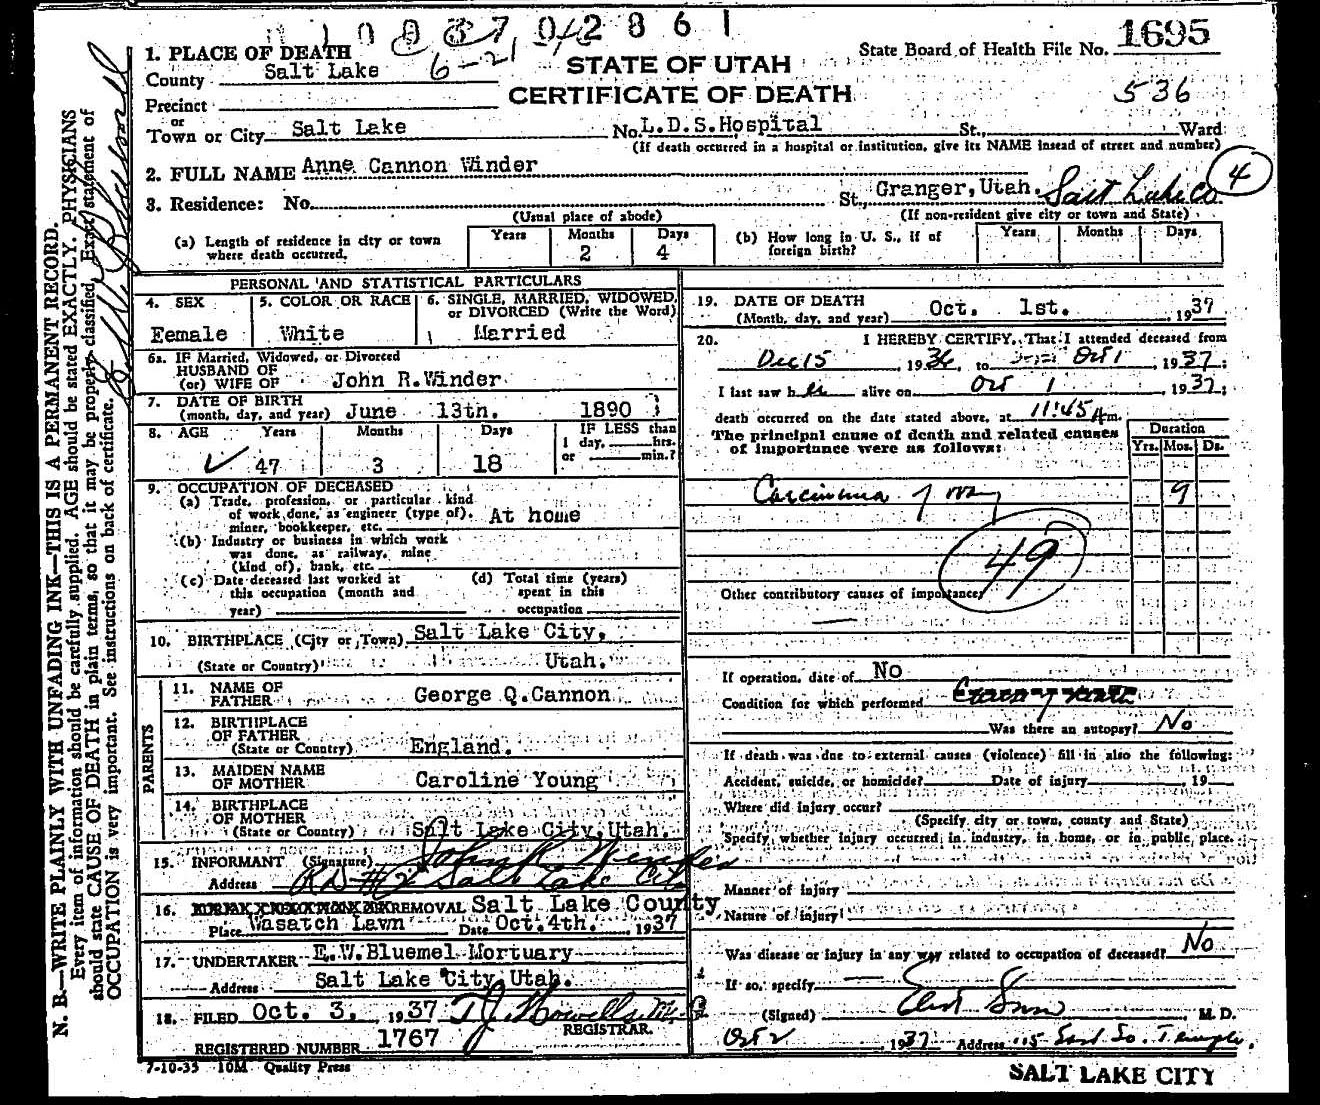 1695
State Board of Health File No.
STATE OF UTAH
CERTIFICATE OF DEATH
536
1. PLACE OF DEATH
County Salt Lake
6-21
Precinct
or
Town or City Salt Lake No. L.D.S.Hospital St., Ward
(If death occurred in a hospital or institution, give its NAME insead of street and number)
2. FULL NAME Anne Cannon Winder
3. Residence: No. St., Granger, Utah. Salt Lake Co 4
(Usual place of abode) (If non-resident give city or town and State)
(a) Length of residence in city or town where death occurred. Years Months 2 Days 4
(b) How long in U. S., if of foreign birth? Years Months Days
PERSONAL AND STATISTICAL PARTICULARS
4. SEX Female
5. COLOR OR RACE White
6. SINGLE, MARRIED, WIDOWED, or DIVORCED (Write the Word) Married
6a. IF Married, Widowed, or Divorced
HUSBAND OF
(or) WIFE OF John R.Winder
7. DATE OF BIRTH
(month, day, and year) June 13th. 1890
8. AGE Years 47 Months 3 Days 18
IF LESS than
1 day, hrs.
or min.?
9. OCCUPATION OF DECEASED
(a) Trade, profession, or particular kind
of work done, as engineer (type of).
miner, bookkeeper, etc. At home
(b) Industry or business in which work
was done, as railway, mine
(kind of), bank, etc.
(c) Date deceased last worked at
this occupation (month and
year)
(d) Total time (years)
spent in this
occupation
10. BIRTHPLACE (City or Town) Salt Lake City,
(State or Country) Utah.
PARENTS
11. NAME OF
FATHER George Q.Cannon
12. BIRTHPLACE
OF FATHER
(State or Country) England.
13. MAIDEN NAME
OF MOTHER Caroline Young
14. BIRTHPLACE
OF MOTHER
(State or Country) Salt Lake City,Utah.
15. INFORMANT (Signature) John R. Winder
Address RD #2 Salt Lake City
16. REMOVAL Salt Lake County
Place Wasatch Lawn Date Oct.4th. 1937
17. UNDERTAKER E.W.Bluemel Mortuary
Address Salt Lake City,Utah.
18. FILED Oct. 3, 1937 T.J. Howells
REGISTRAR.
REGISTERED NUMBER 1767
7-10-35 10M Quality Press
19. DATE OF DEATH
(Month, day, and year) Oct. 1st. 1937
20. I HEREBY CERTIFY, That I attended deceased from
Dec 15 1936, to Oct 1 1937;
I last saw her alive on Oct 1 1937;
death occurred on the date stated above, at 11:45 A m.
The principal cause of death and related causes
of importance were as follows:
Duration
Yrs. Mos. Ds.
Carcinoma of ovary 9
49
Other contributory causes of importance:
If operation, date of No
Condition for which performed
Was there an autopsy? No
If death was due to external causes (violence) fill in also the following:
Accident, suicide, or homicide? Date of injury 19
Where did injury occur?
(Specify city or town, county and State)
Specify whether injury occurred in industry, in home, or in public place.
Manner of injury
Nature of injury
Was disease or injury in any way related to occupation of deceased? No
If so, specify
(Signed) M. D.
Oct 2, 1937 Address 115 East So. Temple.
SALT LAKE CITY
N. B.—WRITE PLAINLY WITH UNFADING INK—THIS IS A PERMANENT RECORD.
Every item of information should be carefully supplied. AGE should be stated EXACTLY. PHYSICIANS
should state CAUSE OF DEATH in plain terms, so that it may be properly classified. Exact statement of
OCCUPATION is very important. See instructions on back of certificate.